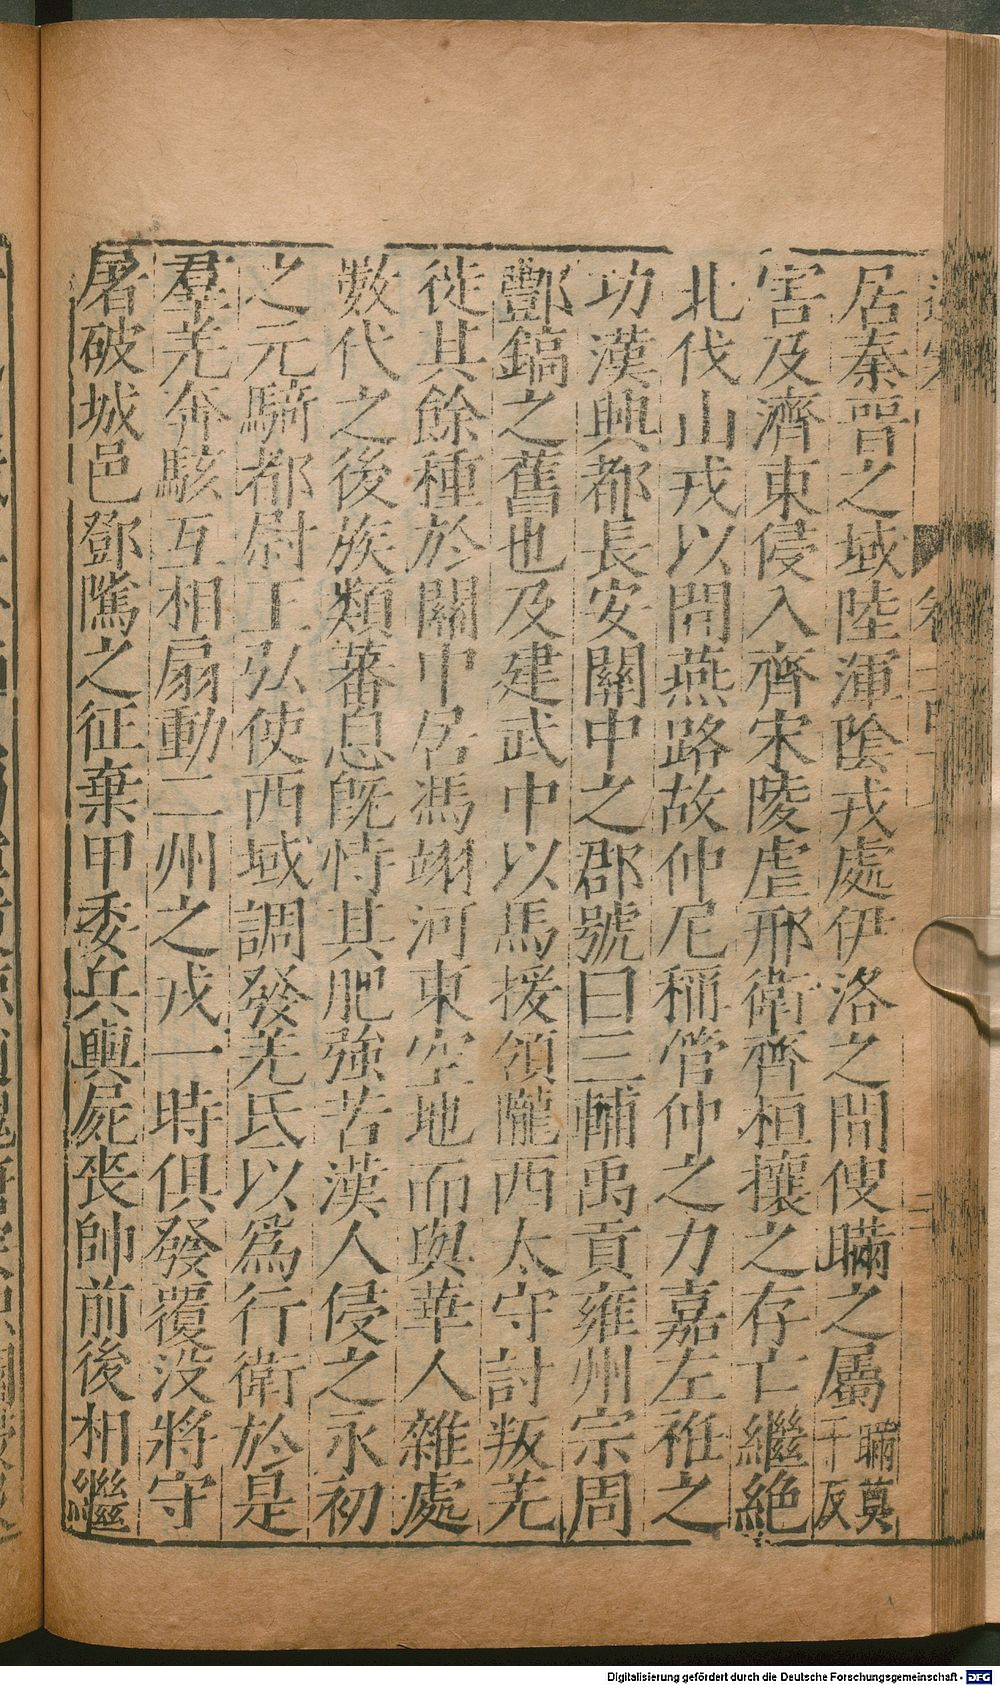 居秦晉之域陸渾陰戎處伊洛之間傁瞞之屬瞞莫干反
害及濟東侵入齊宋陵虐邢衛齊桓攘之存亡繼絶
北伐山戎以開燕路故仲尼稱管仲之力嘉左袵之
功漢興都長安關中之郡號曰三輔禹貢雍州宗周
酆鎬之舊也及建武中以馬援領隴西太守討叛羌
徙其餘種於關中居馮翊河東空地而與華人雜處
數代之後族類蕃息旣恃其肥強苦漢人侵之永初
之元騎都尉王弘使西域調發羌氐以爲行衛於是
羣羌奔駭互相扇動二州之戎一時俱發覆没將守
屠破城邑鄧騭之征棄甲委兵輿屍喪帥前後相繼
Digitalisierung gefördert durch die Deutsche Forschungsgemeinschaft - DFG